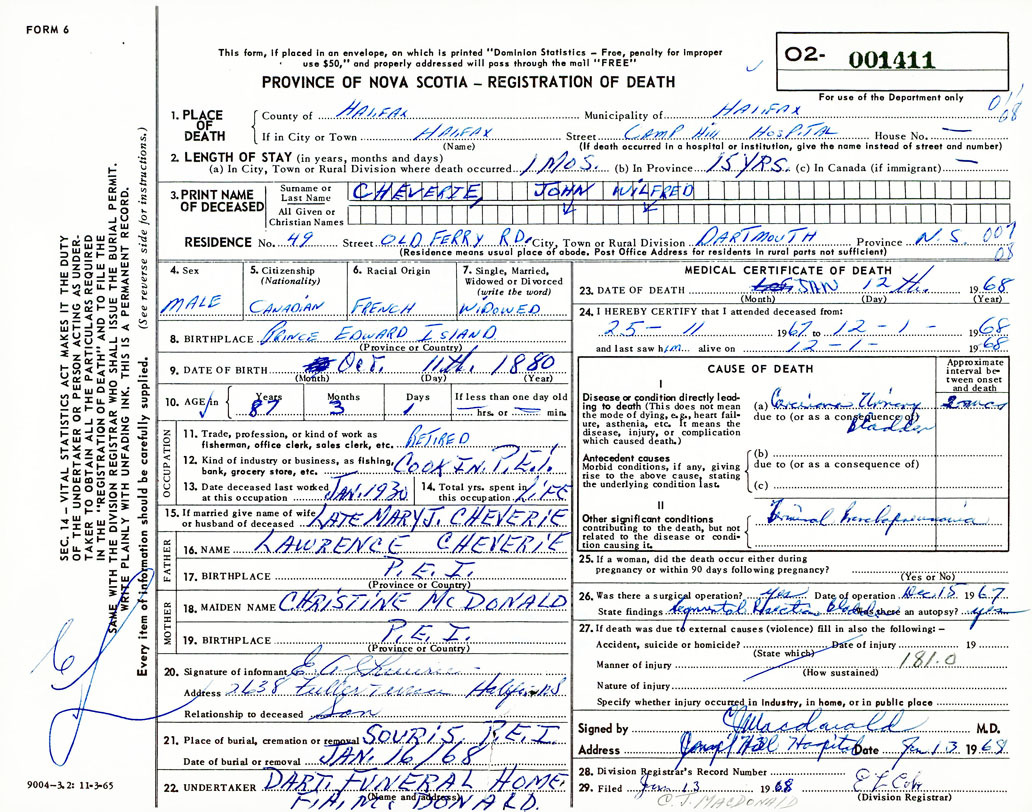 FORM 6
This form, if placed in an envelope, on which is printed "Dominion Statistics – Free, penalty for improper
use $50," and properly addressed will pass through the mail "FREE"
PROVINCE OF NOVA SCOTIA – REGISTRATION OF DEATH
O2- 001411
For use of the Department only
SEC. 14 – VITAL STATISTICS ACT MAKES IT THE DUTY
OF THE UNDERTAKER OR PERSON ACTING AS UNDER-
TAKER TO OBTAIN ALL THE PARTICULARS REQUIRED
IN THE "REGISTRATION OF DEATH" AND TO FILE THE
SAME WITH THE DIVISION REGISTRAR WHO SHALL ISSUE BURIAL PERMIT.
WRITE PLAINLY WITH UNFADING INK. THIS IS A PERMANENT RECORD.
Every item of information should be carefully supplied. (See reverse side for instructions.)
1. PLACE OF DEATH
County of HALIFAX Municipality of HALIFAX
If in City or Town HALIFAX Street CAMP HILL HOSPITAL House No. —
(Name) (If death occurred in a hospital or institution, give the name instead of street and number)
2. LENGTH OF STAY (in years, months and days)
(a) In City, Town or Rural Division where death occurred 1 MOS. (b) In Province 15 YRS. (c) In Canada (if immigrant) —
3. PRINT NAME OF DECEASED
Surname or Last Name CHEVERIE, JOHN WILFRED
All Given or Christian Names
RESIDENCE No. 49 Street OLD FERRY RD. City, Town or Rural Division DARTMOUTH Province N.S.
(Residence means usual place of abode. Post Office Address for residents in rural parts not sufficient)
4. Sex
MALE
5. Citizenship (Nationality)
CANADIAN
6. Racial Origin
FRENCH
7. Single, Married, Widowed or Divorced (write the word)
WIDOWED
8. BIRTHPLACE PRINCE EDWARD ISLAND
(Province or Country)
9. DATE OF BIRTH Oct. 11th. 1880
(Month) (Day) (Year)
10. AGE in Years 87 Months 3 Days 1 If less than one day old hrs. or min.
OCCUPATION
11. Trade, profession, or kind of work as fisherman, office clerk, sales clerk, etc. RETIRED
12. Kind of industry or business, as fishing, bank, grocery store, etc. COOK IN. P.E.I.
13. Date deceased last worked at this occupation JAN. 1930
14. Total yrs. spent in this occupation LIFE
15. If married give name of wife or husband of deceased LATE MARY J. CHEVERIE
FATHER
16. NAME LAWRENCE CHEVERIE
17. BIRTHPLACE P.E.I.
(Province or Country)
MOTHER
18. MAIDEN NAME CHRISTINE McDONALD
19. BIRTHPLACE P.E.I.
(Province or Country)
20. Signature of informant
Address 2638 Fuller Terrace Halifax N.S
Relationship to deceased Son
21. Place of burial, cremation or removal SOURIS, P.E.I.
Date of burial or removal JAN. 16/68
22. UNDERTAKER DART. FUNERAL HOME
(Name and address)
9004-3.2: 11-3-65
MEDICAL CERTIFICATE OF DEATH
23. DATE OF DEATH JAN 12th. 1968
(Month) (Day) (Year)
24. I HEREBY CERTIFY that I attended deceased from:
25 – 11 1967 to 12 – 1 – 1968
and last saw him alive on 12 – 1 – 1968
CAUSE OF DEATH
Approximate interval between onset and death
I
Disease or condition directly leading to death (This does not mean the mode of dying, e.g., heart failure, asthenia, etc. It means the disease, injury, or complication which caused death.)
(a) Carcinoma Urinary Bladder
due to (or as a consequence of)
Antecedent causes
Morbid conditions, if any, giving rise to the above cause, stating the underlying condition last.
(b)
due to (or as a consequence of)
(c)
II
Other significant conditions contributing to the death, but not related to the disease or condition causing it.
Terminal bronchopneumonia
25. If a woman, did the death occur either during pregnancy or within 90 days following pregnancy?
(Yes or No)
26. Was there a surgical operation? yes Date of operation Dec. 15 1967
State findings Segmental Resection Bladder Was there an autopsy? yes
27. If death was due to external causes (violence) fill in also the following: –
Accident, suicide or homicide? Date of injury 19
(State which)
Manner of injury 181.0
(How sustained)
Nature of injury
Specify whether injury occurred in Industry, in home, or in public place
Signed by CJ Macdonald M.D.
Address Camp Hill Hospital Date Jan 13 1968
28. Division Registrar's Record Number
29. Filed Jan 13 1968
(Division Registrar)
C. J. MACDONALD